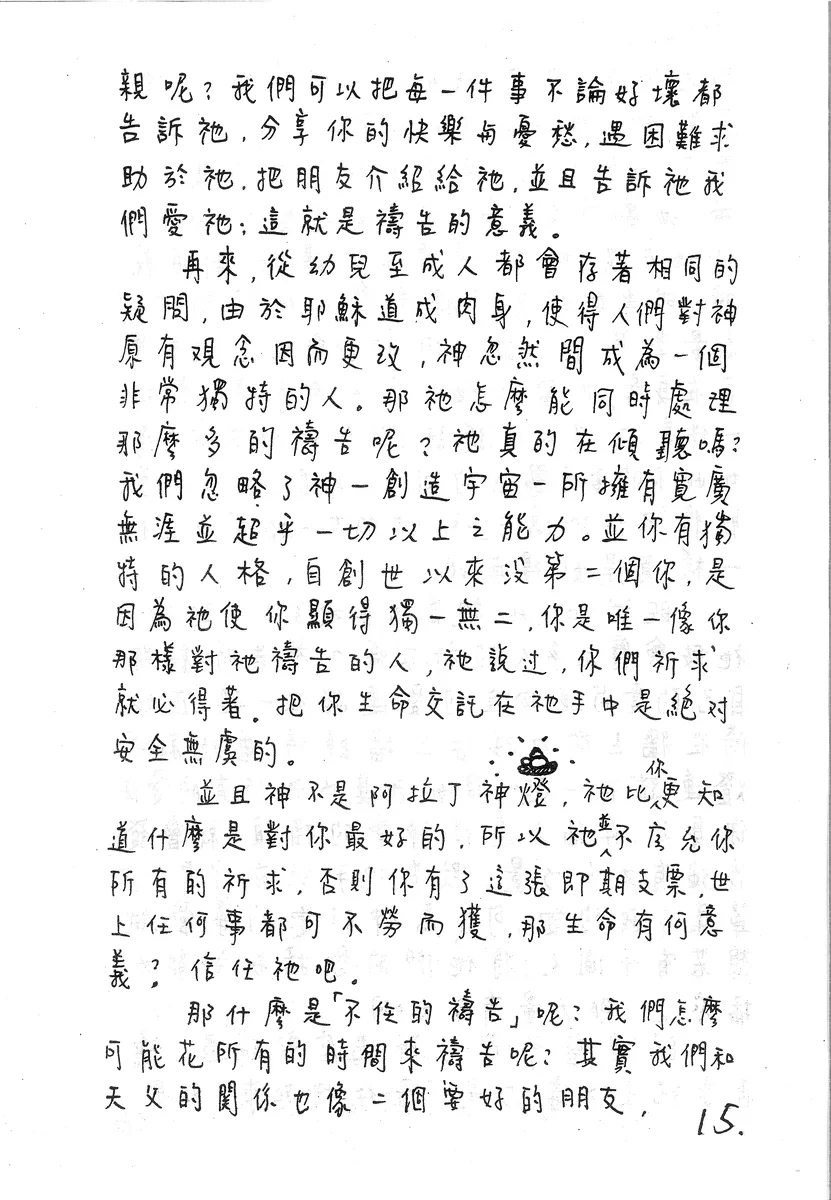 親呢？我們可以把每一件事不論好壞都
告訴祂，分享你的快樂與憂愁，遇困難求
助於祂，把朋友介紹給祂，並且告訴祂我
們愛祂；這就是禱告的意義。
再來，從幼兒至成人都會存著相同的
疑問，由於耶穌道成肉身，使得人們對神
原有觀念因而更改，神忽然間成為一個
非常獨特的人。那祂怎麼能同時處理
那麼多的禱告呢？祂真的在傾聽嗎？
我們忽略了神一創造宇宙一所擁有寬廣
無涯並超乎一切以上之能力。並你有獨
特的人格，自創世以來没第二個你，是
因為祂使你顯得獨一無二，你是唯一像你
那樣對祂禱告的人，祂說过，你們祈求
就必得著。把你生命交託在祂手中是絕对
安全無虞的。
並且神不是阿拉丁神燈，祂比你更知
道什麼是對你最好的，所以祂並不应允你
所有的祈求，否則你有了這張即期支票，世
上任何事都可不勞而獲，那生命有何意
義？信任祂吧。
那什麼是「不住的禱告」呢？我們怎麼
可能花所有的時間來禱告呢？其實我們和
天父的関係也像二個要好的朋友，
15.